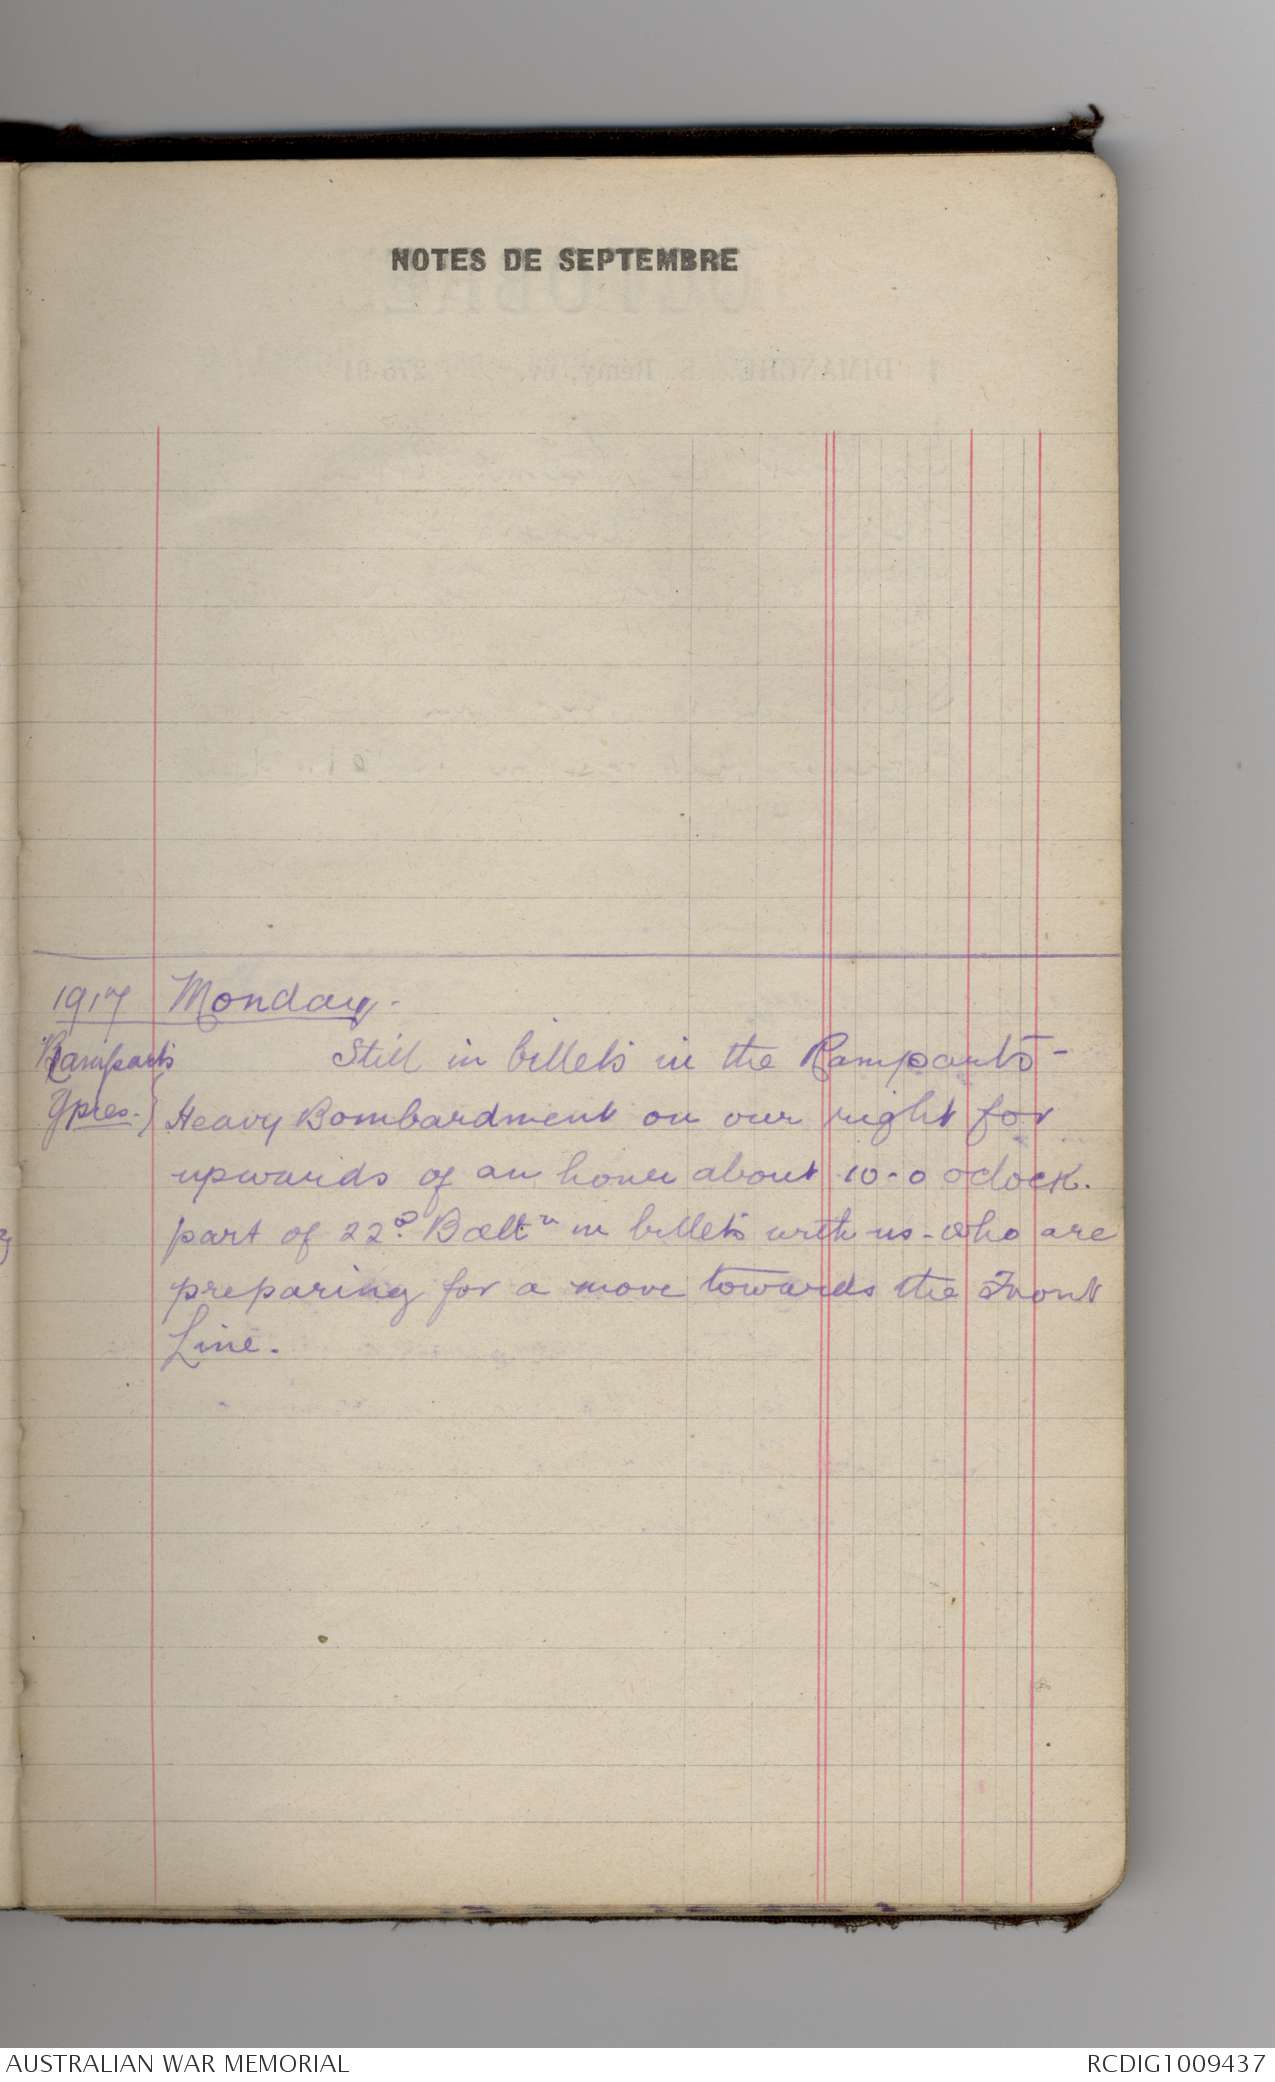 NOTES DE SEPTEMBRE
1917 Monday.
Ramparts Still in billets in the Ramparts -
Ypres. } Heavy Bombardment on our right for
upwards of an hour about 10-0 oclock.
part of 22nd Battn in billets with us - who are
preparing for a move towards the Front
Line.
AUSTRALIAN WAR MEMORIAL RCDIG1009437